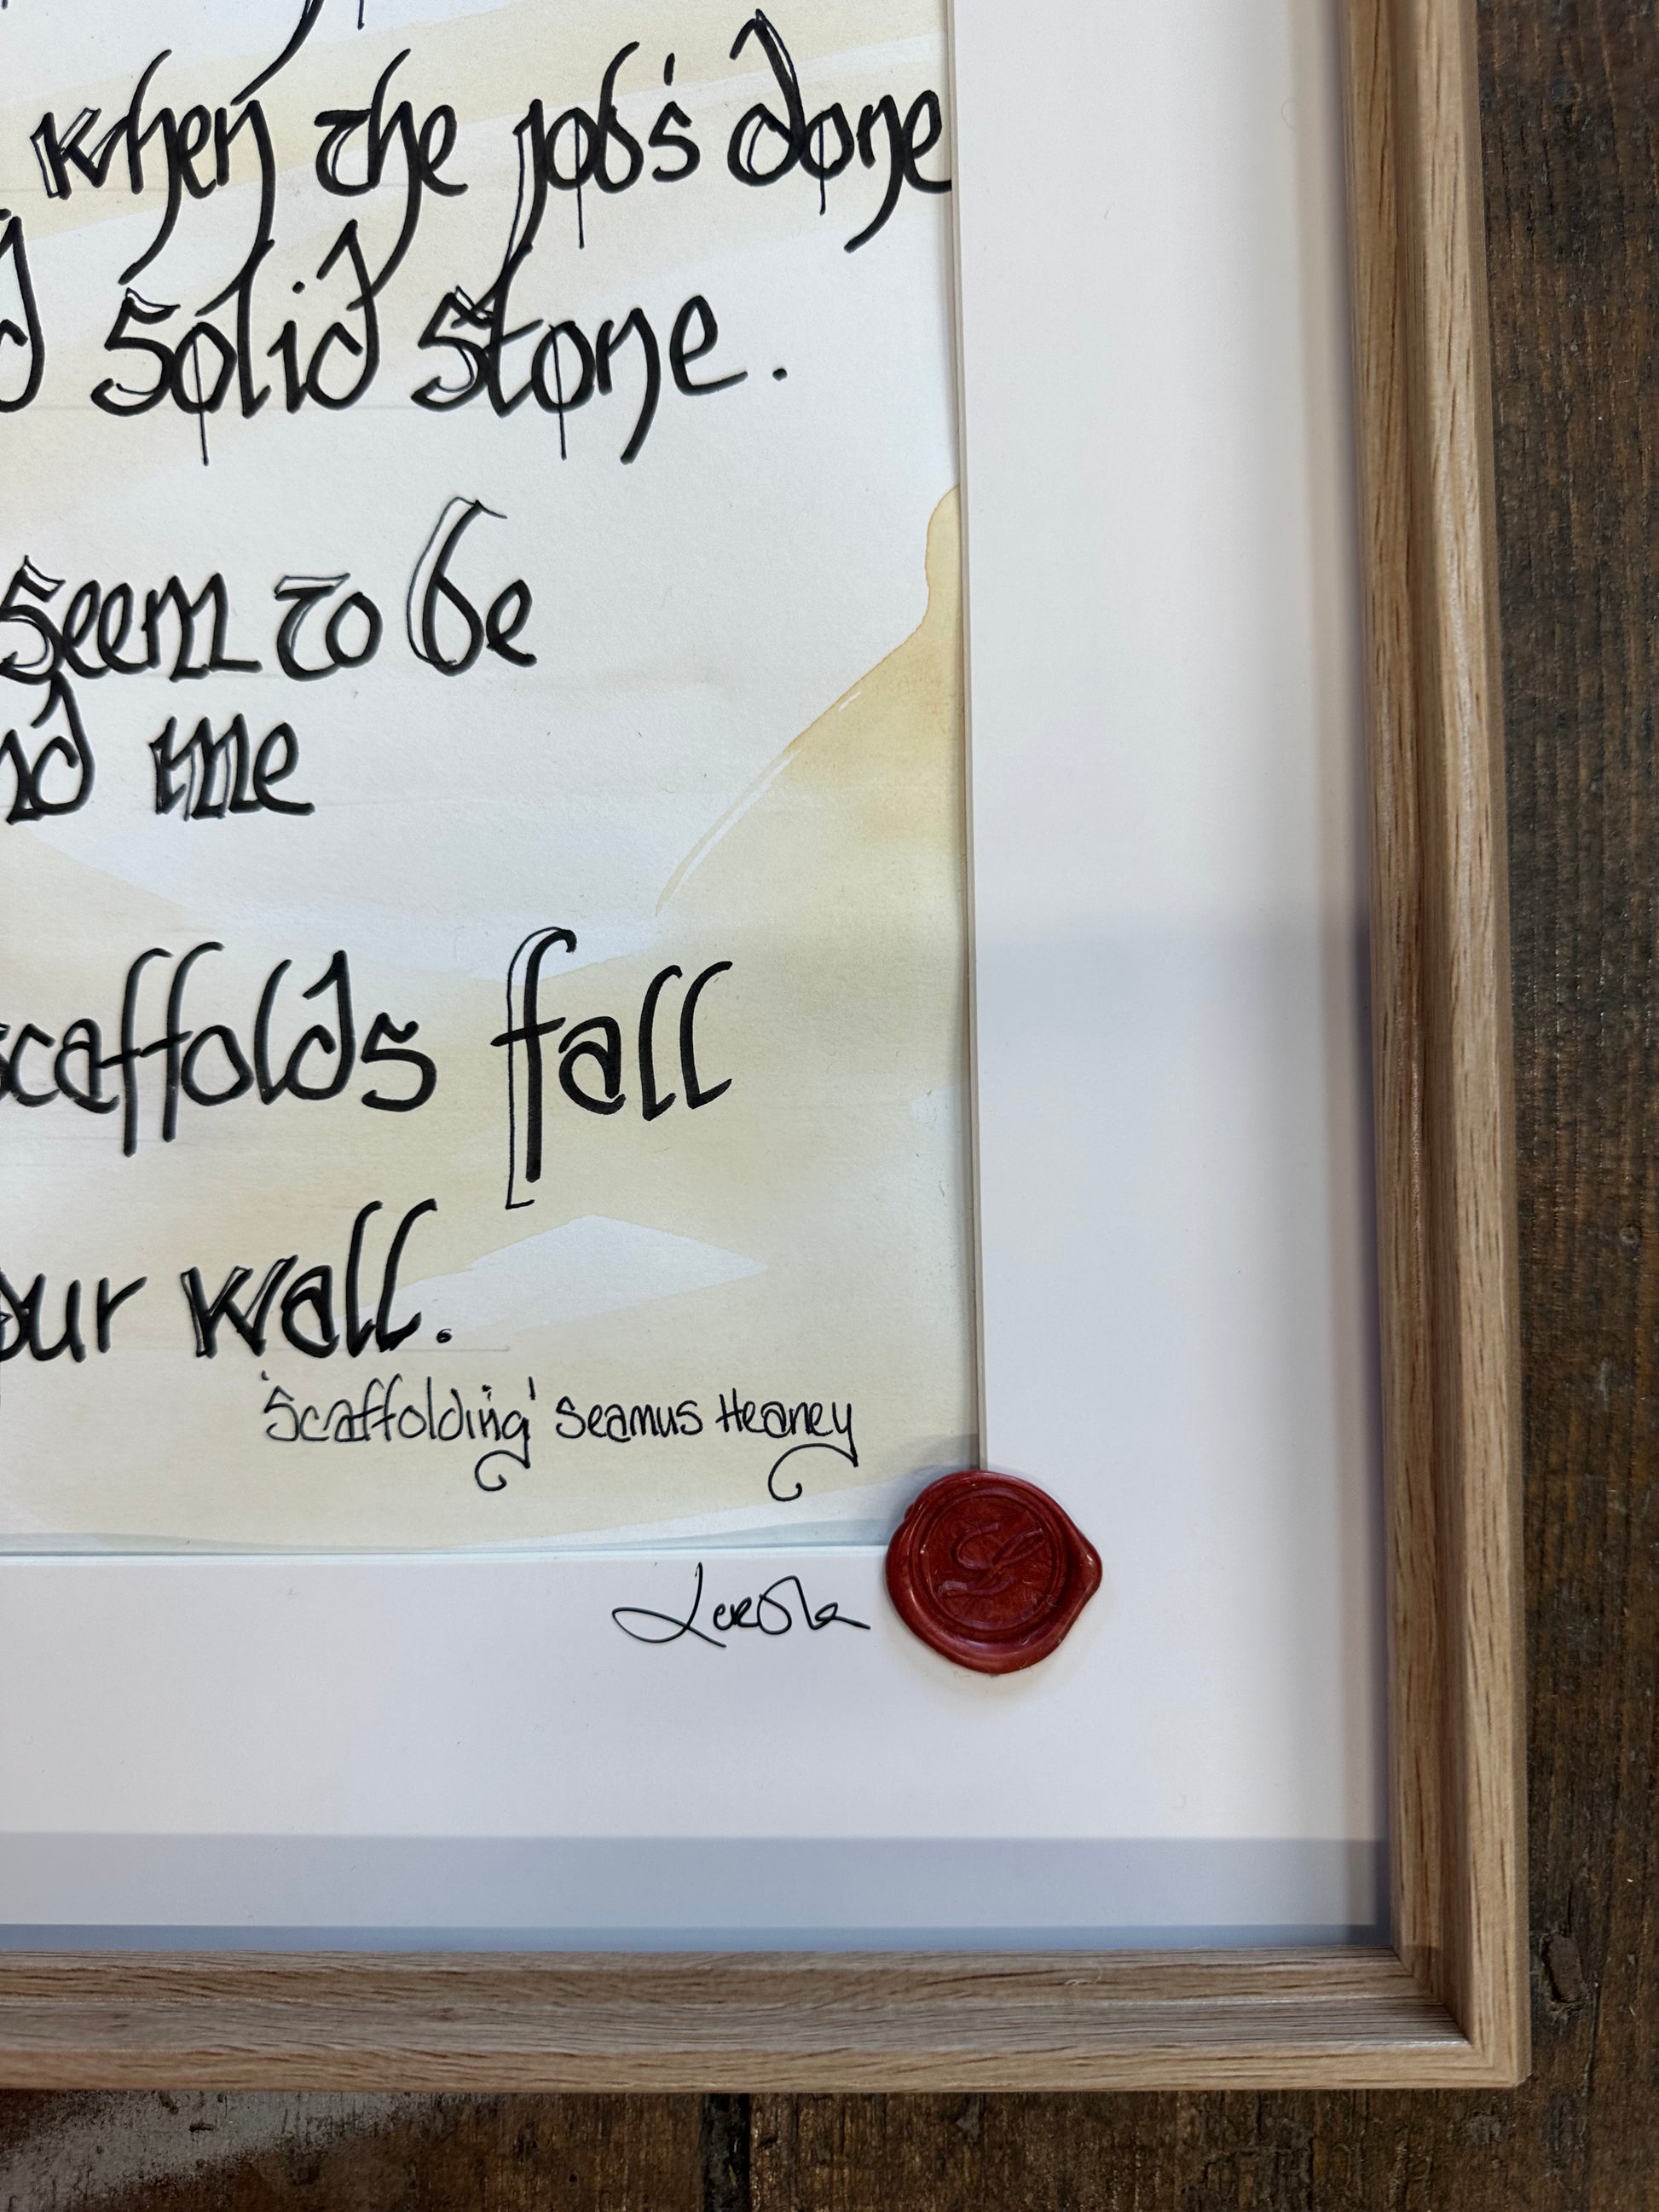 when the job's done
d solid stone.
seem to be
nd me
scaffolds fall
our wall.
'Scaffolding' Seamus Heaney